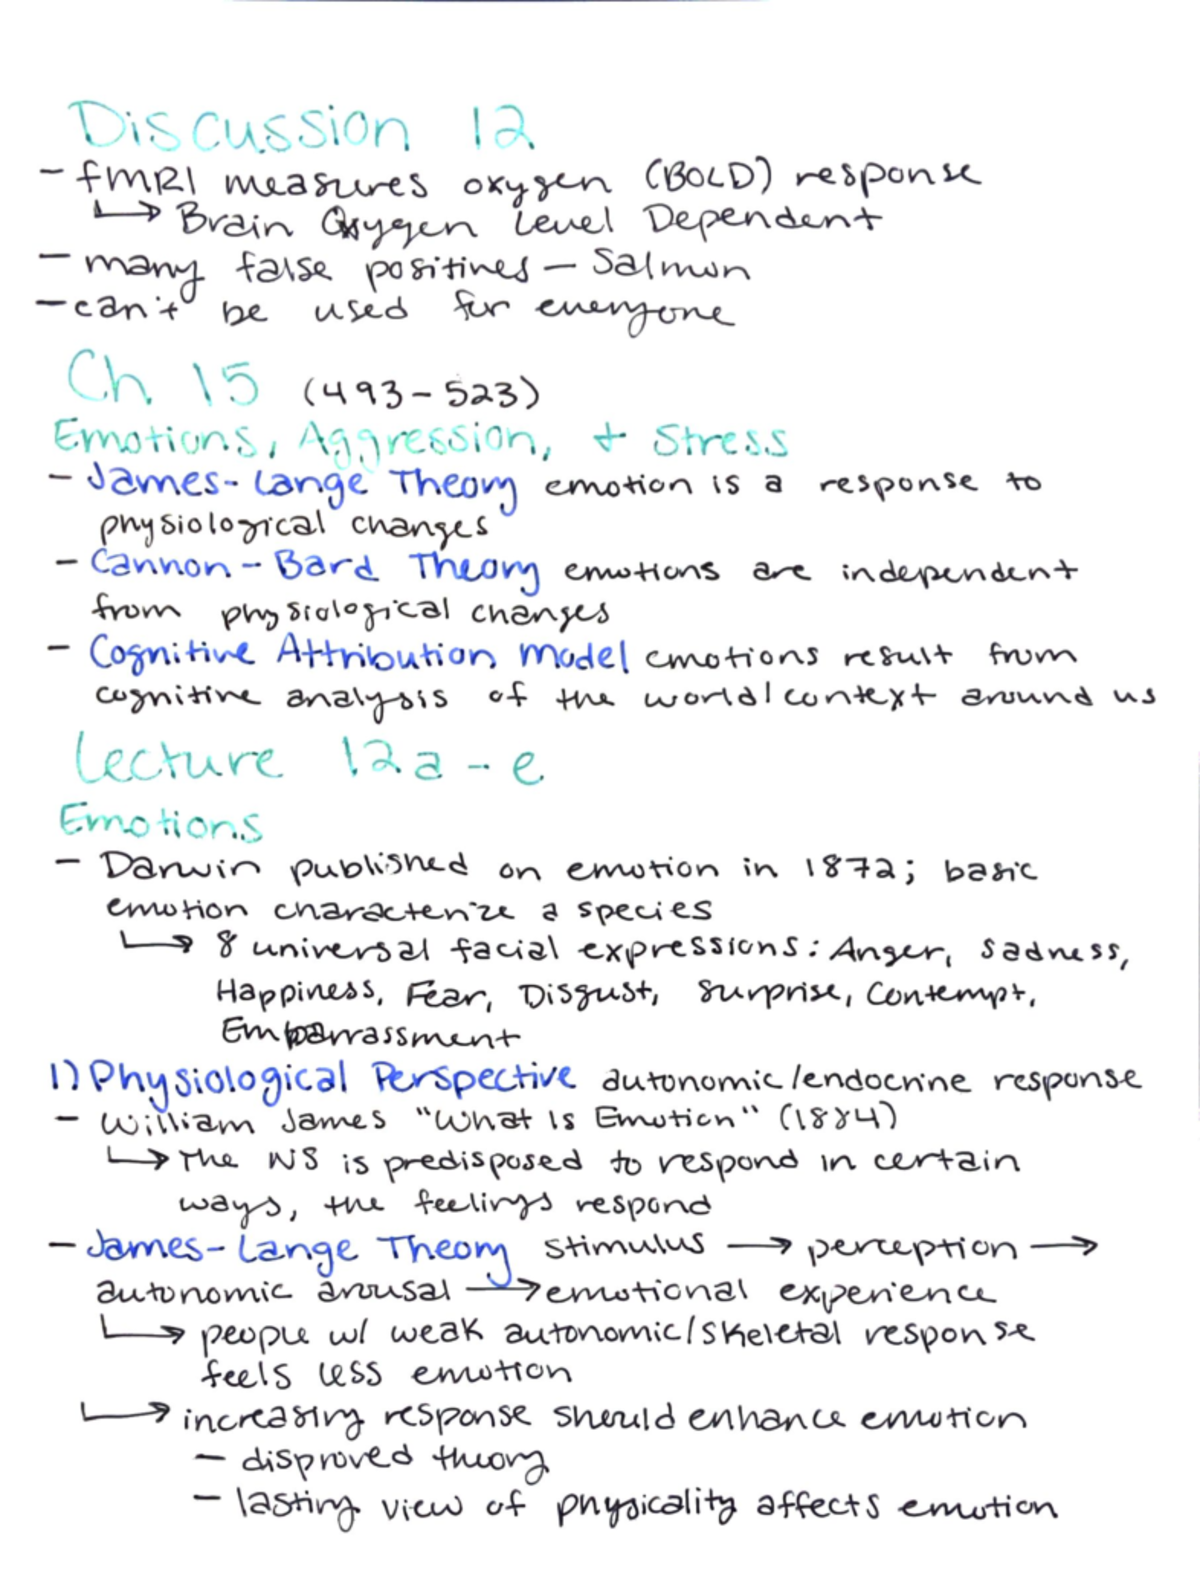 Discussion 12
- fMRI measures oxygen (BOLD) response
↳ Brain Oxygen Level Dependent
- many false positives - Salmon
- can't be used for everyone
Ch. 15 (493-523)
Emotions, Aggression, + Stress
- James-Lange Theory emotion is a response to
physiological changes
- Cannon-Bard Theory emotions are independent
from physiological changes
- Cognitive Attribution Model emotions result from
cognitive analysis of the world/context around us
Lecture 12a-e
Emotions
- Darwin published on emotion in 1872; basic
emotion characterize a species
↳ 8 universal facial expressions: Anger, Sadness,
Happiness, Fear, Disgust, Surprise, Contempt,
Embarrassment
1) Physiological Perspective autonomic/endocrine response
- William James "What Is Emotion" (1884)
↳ The NS is predisposed to respond in certain
ways, the feelings respond
- James-Lange Theory stimulus → perception →
autonomic arousal → emotional experience
↳ people w/ weak autonomic/skeletal response
feels less emotion
↳ increasing response should enhance emotion
- disproved theory
- lasting view of physicality affects emotion